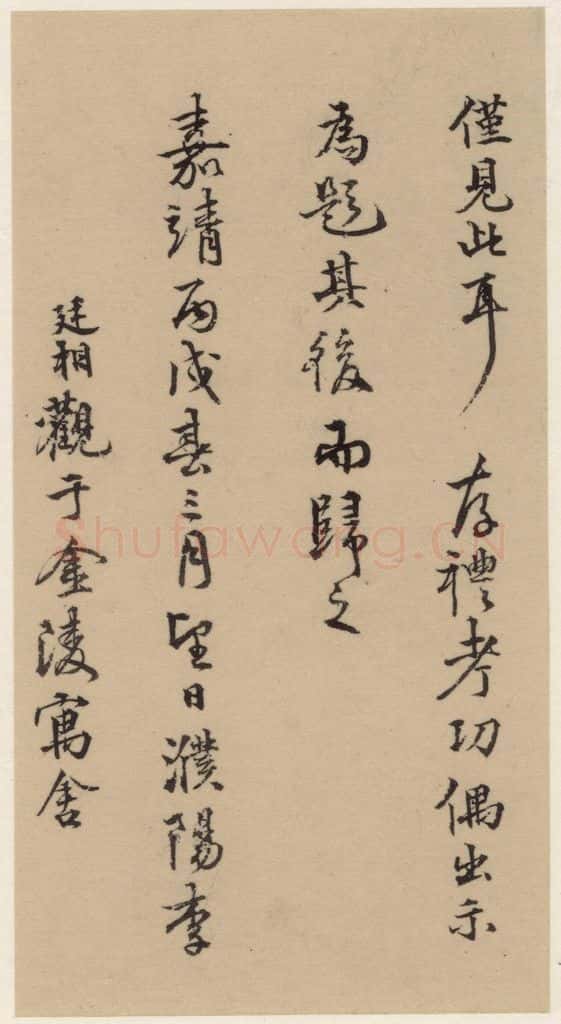 僅見此耳 存禮考功偶出示
為題其後而歸之
嘉靖丙戌春三月望日濮陽李
廷相觀于金陵寓舍
Shufawang.CN